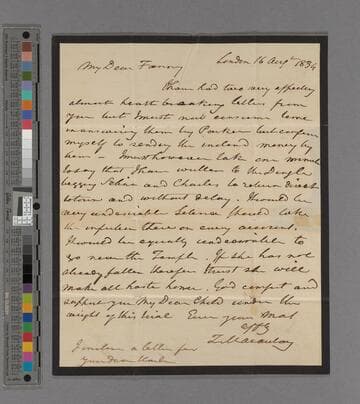 London 16 Augt 1834
My Dear Fanny
I have had two very affecting
almost heart breaking letters from
you but I must not consume time
in answering them by Parker but confine
myself to sending the instead money by
him - I must however take one minute
to say that I have written to the Temple
begging Selina and Charles to return direct
and without delay. It would be
very undesirable Selina should take
the on every account.
It would be equally undesirable to
go near the Temple. If she has not
already fallen I trust she will
make all haste home. God comfort and
support you My Dear Child under the
weight of this trial Ever yours Most
affy
Z Macaulay
I enclose a letter for
your dear